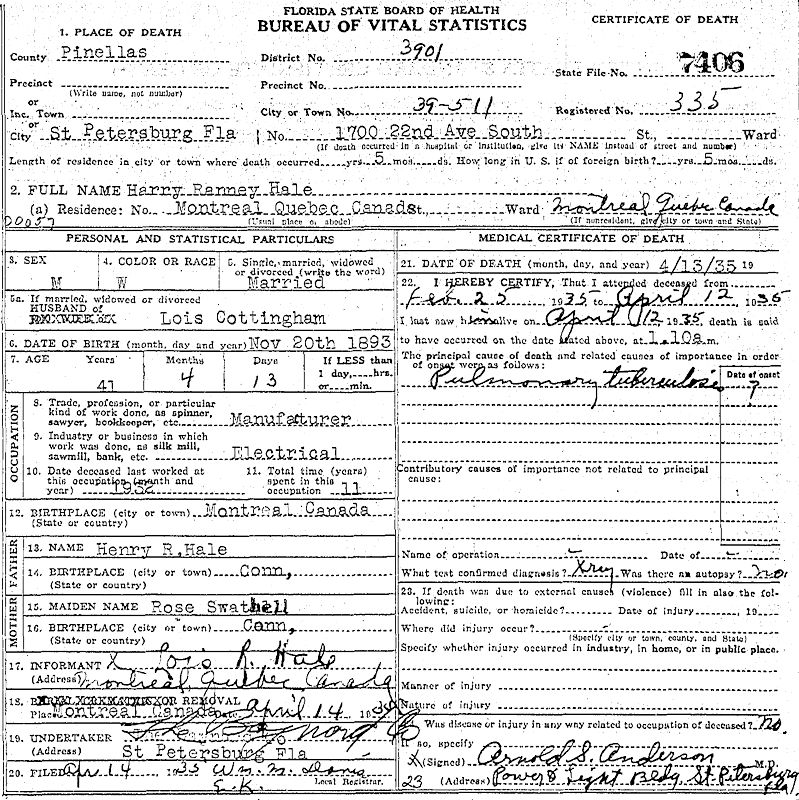 FLORIDA STATE BOARD OF HEALTH
BUREAU OF VITAL STATISTICS
CERTIFICATE OF DEATH
1. PLACE OF DEATH
County Pinellas
District No. 3901
State File No. 7406
Precinct
(Write name, not number)
Precinct No.
or
Inc. Town
City or Town No. 39-511
Registered No. 335
or
City St Petersburg Fla
No. 1700 22nd Ave South St., Ward
(If death occurred in a hospital or institution, give its NAME instead of street and number)
Length of residence in city or town where death occurred yrs. 5 mos. ds. How long in U. S. if of foreign birth? yrs. 5 mos. ds.
2. FULL NAME Harry Ranney Hale
(a) Residence: No. Montreal Quebec Canada St., Ward Montreal Quebec Canada
(Usual place of abode) (If nonresident, give city or town and State)
20057
PERSONAL AND STATISTICAL PARTICULARS
3. SEX
M
4. COLOR OR RACE
W
5. Single, married, widowed
or divorced (write the word)
Married
5a. If married, widowed or divorced
HUSBAND of
Lois Cottingham
6. DATE OF BIRTH (month, day and year) Nov 20th 1893
7. AGE Years Months Days If LESS than
1 day, hrs.
or min.
41 4 13
OCCUPATION
8. Trade, profession, or particular
kind of work done, as spinner,
sawyer, bookkeeper, etc. Manufaturer
9. Industry or business in which
work was done, as silk mill,
sawmill, bank, etc. Electrical
10. Date deceased last worked at
this occupation (month and
year) 1932
11. Total time (years)
spent in this
occupation 11
12. BIRTHPLACE (city or town) Montreal Canada
(State or country)
FATHER
13. NAME Henry R.Hale
14. BIRTHPLACE (city or town) Conn,
(State or country)
MOTHER
15. MAIDEN NAME Rose Swathell
16. BIRTHPLACE (city or town) Conn,
(State or country)
17. INFORMANT X Lois R. Hale
(Address) Montreal, Quebec Canada
18. OR REMOVAL
Place Montreal Canada Date April 14 19
19. UNDERTAKER
(Address) St Petersburg Fla
20. FILED Apr 14 1935 Wm. M. Davis
Local Registrar.
E.K.
MEDICAL CERTIFICATE OF DEATH
21. DATE OF DEATH (month, day, and year) 4/13/35 19
22. I HEREBY CERTIFY, That I attended deceased from
Feb. 25 1935 to April 12, 1935
I last saw him alive on April 12 1935, death is said
to have occurred on the date stated above, at 1.10a m.
The principal cause of death and related causes of importance in order
of onset were as follows:
Date of onset
Pulmonary tuberculosis ?
Contributory causes of importance not related to principal
cause:
Name of operation - Date of -
What test confirmed diagnosis? Xray Was there an autopsy? no
23. If death was due to external causes (violence) fill in also the fol-
lowing:
Accident, suicide, or homicide? Date of injury , 19
Where did injury occur?
(Specify city or town, county, and State)
Specify whether injury occurred in industry, in home, or in public place.
Manner of injury
Nature of injury
Was disease or injury in any way related to occupation of deceased? no.
If so, specify
X (Signed) Arnold S. Anderson M.D.
23 (Address) Power & Light Bldg. St Petersburg
Fla